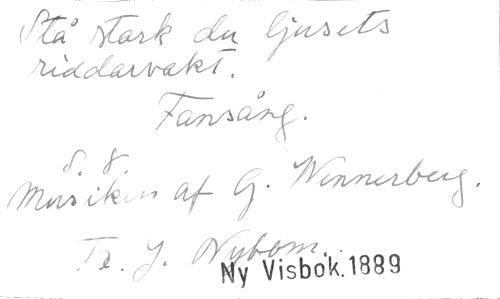 Stå stark du ljusets
riddarvakt.
Fansång.
S. f.
Musiken af G. Wennerberg.
Tr. J. Nybom.
Ny Visbok. 1889